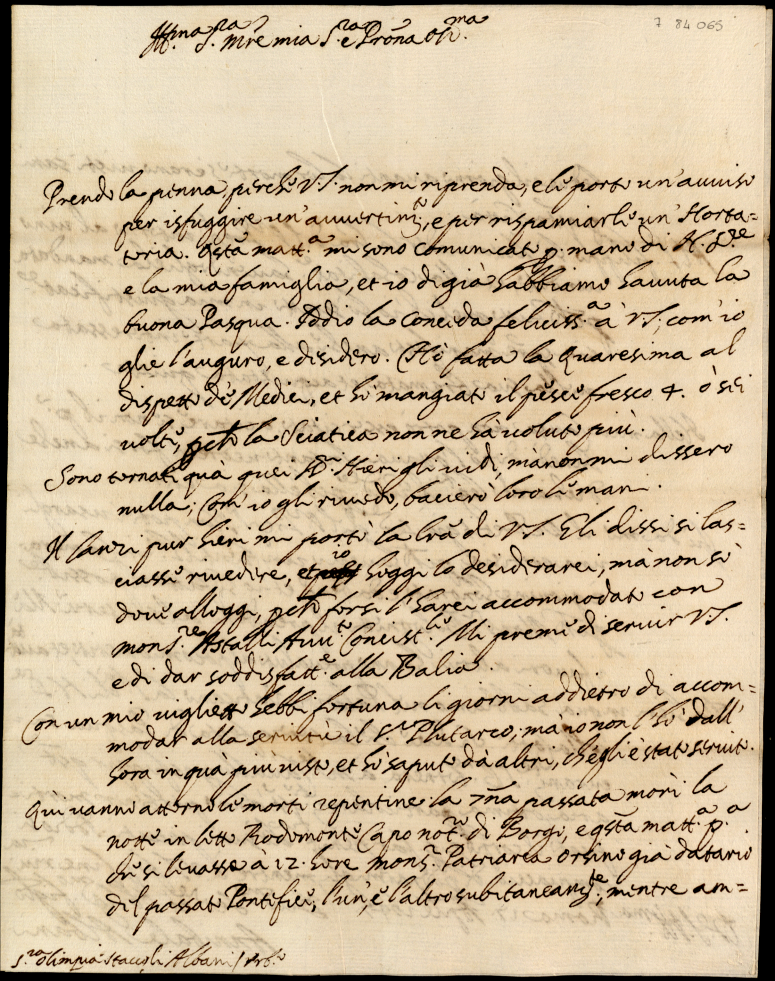 7 84 065
Ill.ma S.ra S.ra Mre mia S.ra e Prõna Oss.ma
Prendo la penna, perche V.S. non mi riprenda, e le porto un'avviso
per isfuggire un'avvertim.to, e per risparmiarle un'Horta=
toria. Qsta matt.a mi sono comunicato p. mano di N. S.re
e la mia famiglia, et io di già habbiamo havuta la
buona Pasqua. Iddio la conceda feliciss.a à V.S. com'io
glie l'auguro, e disidero. Hò fatta la Quaresima al
dispetto de Medici, et hò mangiato il pesce fresco 4. ò sei
volte, pche la Sciatica non ne hà voluto più.
Sono tornati quà quei SS.ri Hieri gli vidi, mà non mi dissero
nulla; Com'io gli rivedo, bacierò loro le mani.
Il Lanci pur hieri mi portò la lrã di V.S. E li dissi si las=
ciasse rivedere, et io hoggi lo desiderarei, mà non sò
dove alloggi, pche forsi l'harei accommodato con
mons.re Astalli Avv.to Concist.le Mi preme di servir V.S.
e di dar soddisfatt.e alla Balia.
Con un mio viglietto hebbi fortuna li giorni addietro di accom=
modar alla servitù il S.r Plutarco; mà io non l'hò dall'
hora in quà più visto, et hò saputo dà altri, ch'egli è stato servito.
Qui vanno attorno le morti repentine: la 7ña passata morì la
notte in letto Rodomonte Capo not.ro di Borgo, e qsta matt.a p.a
che si levasse a 12. hore mons.r Patriarca Orsino già datario
del passato Pontefice, l'un', e l'altro subitaneam.te; mentre am=
S.ra Olimpia Staccoli Albani / Urb.o